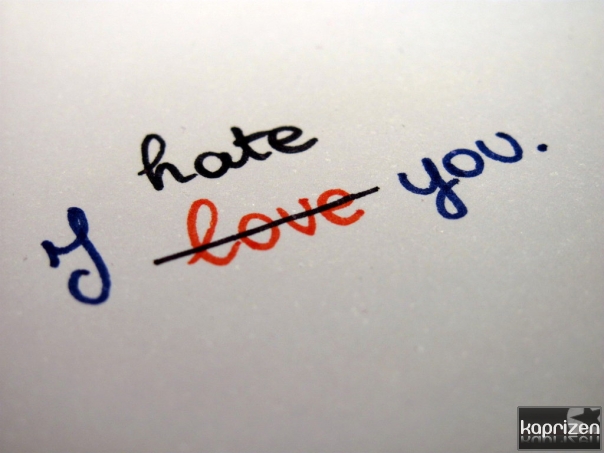 hate
I love you.
kaprizen